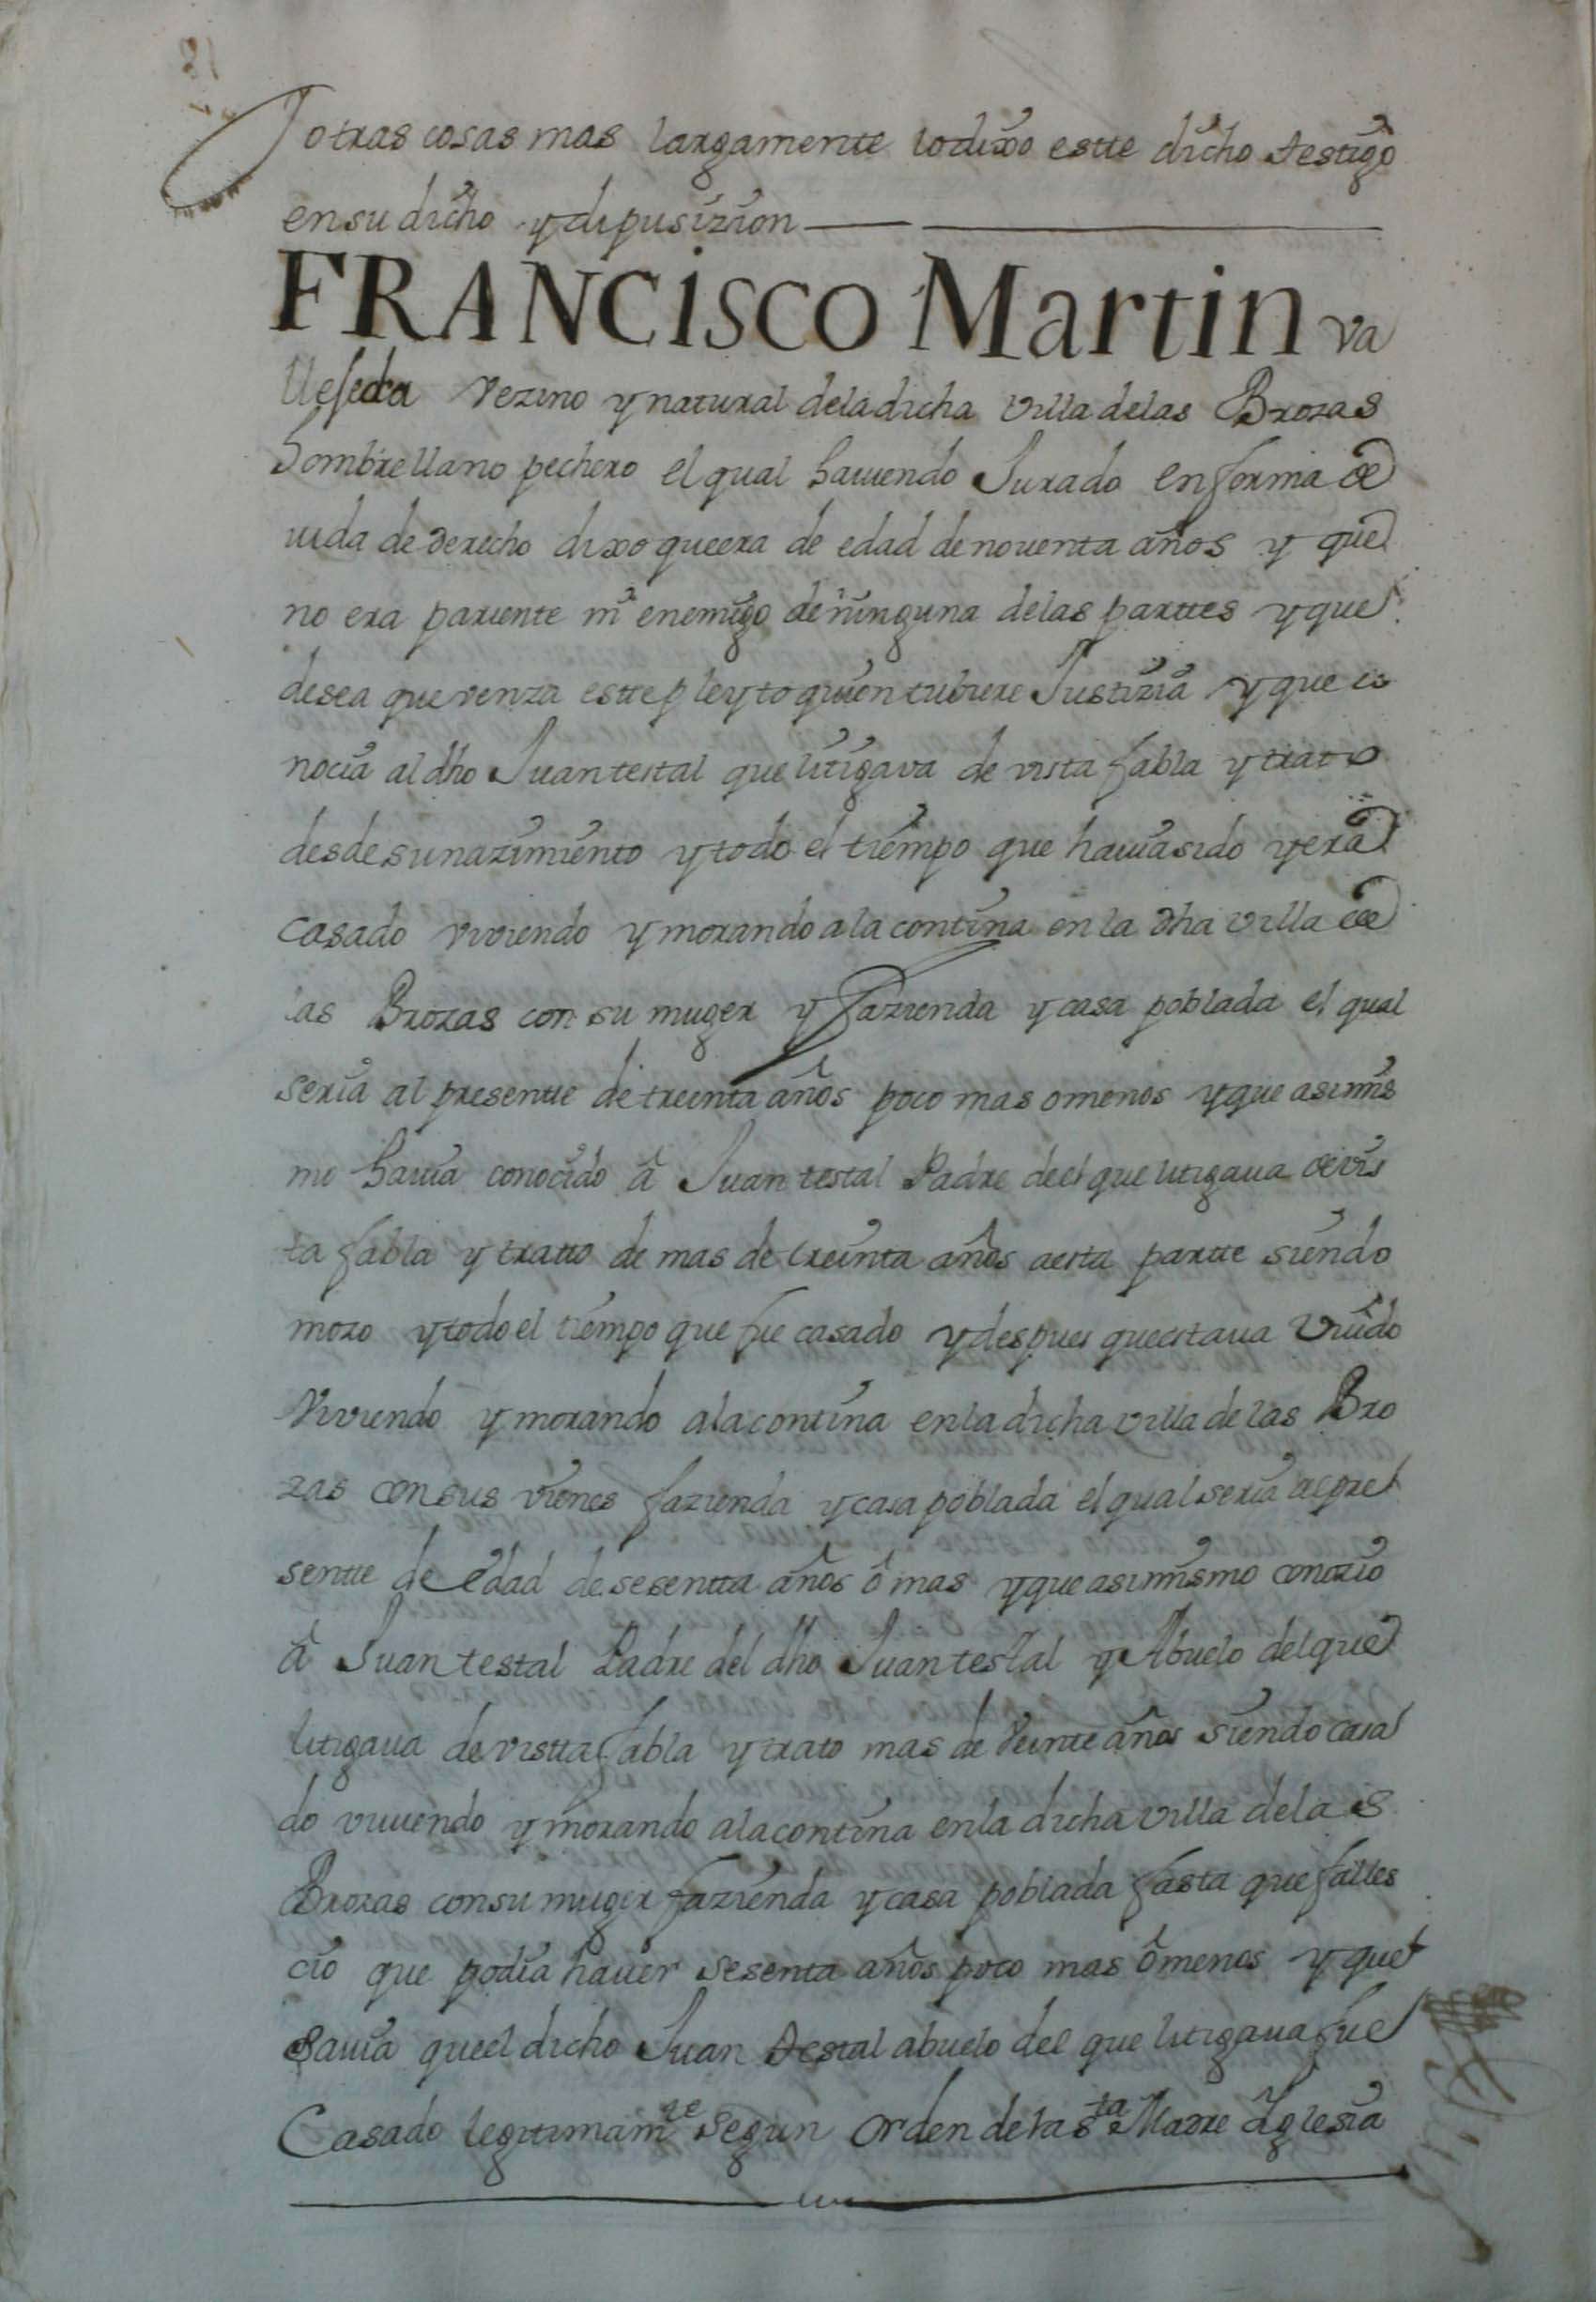 y otras cosas mas largamente lo dixo estte dicho testigo
en su dicho y dipusizion
FRANCISCO Martin Va
lleseca Vezino y natural de la dicha villa de las Brozas
hombre llano pechero el qual haviendo Jurado en forma de
uida de derecho dixo que era de edad de noventa años y que
no era pariente ni enemigo de ninguna de las parttes y que
desea que venza estte pleyto quien tuviere Justizia y que co
nocia al dho Juan testal que litigava de vista fabla y trato
desde su nazimiento y todo el tiempo que havia sido y era
casado viviendo y morando a la contina en la dha villa de
las Brozas con su muger y fazienda y casa poblada el qual
seria al presentte de treinta años poco mas o menos y que asimis
mo havia conocido â Juan testal Padre de el que litigaua de vis
ta fabla y tratto de mas de treinta años aesta partte siendo
mozo y todo el tiempo que fue casado y despues que estaua Viudo
Viviendo y morando a la contina en la dicha villa de las Bro
zas con sus vienes fazienda y casa poblada el qual seria al pre
sentte de edad de sesentta años ô mas y que asimismo conozio
â Juan testal Padre del dho Juan testal y Abuelo del que
litigaua de vistta fabla y trato mas de veintte años siendo casa
do viuiendo y morando a la contina en la dicha villa de las
Brozas con su muger fazienda y casa poblada fasta que falles
cio que podia hauer sesenta años poco mas ô menos y que
savia que el dicho Juan testal abuelo del que litigaua fue
Casado legitimamte segun orden de la sta Madre Iglesia